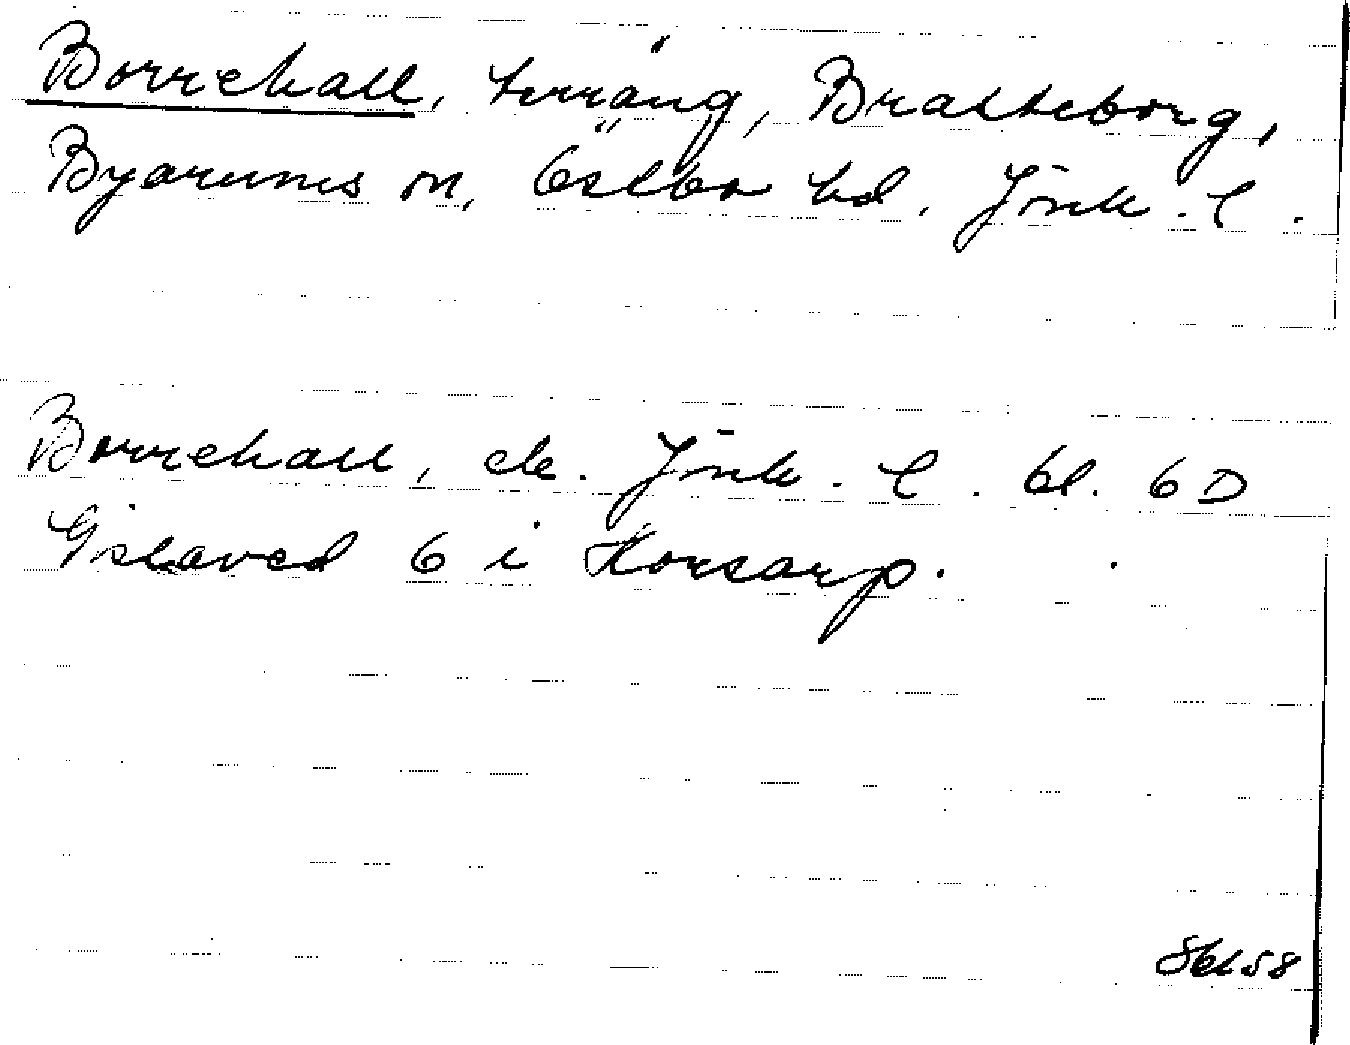 Borrehall, terräng, Bratteborg,
Byarums sn, Östbo hd. Jönk. l.
Borrehall, ek. Jönk. l. bl. 6D
Gislaved 6 i Horsarp.